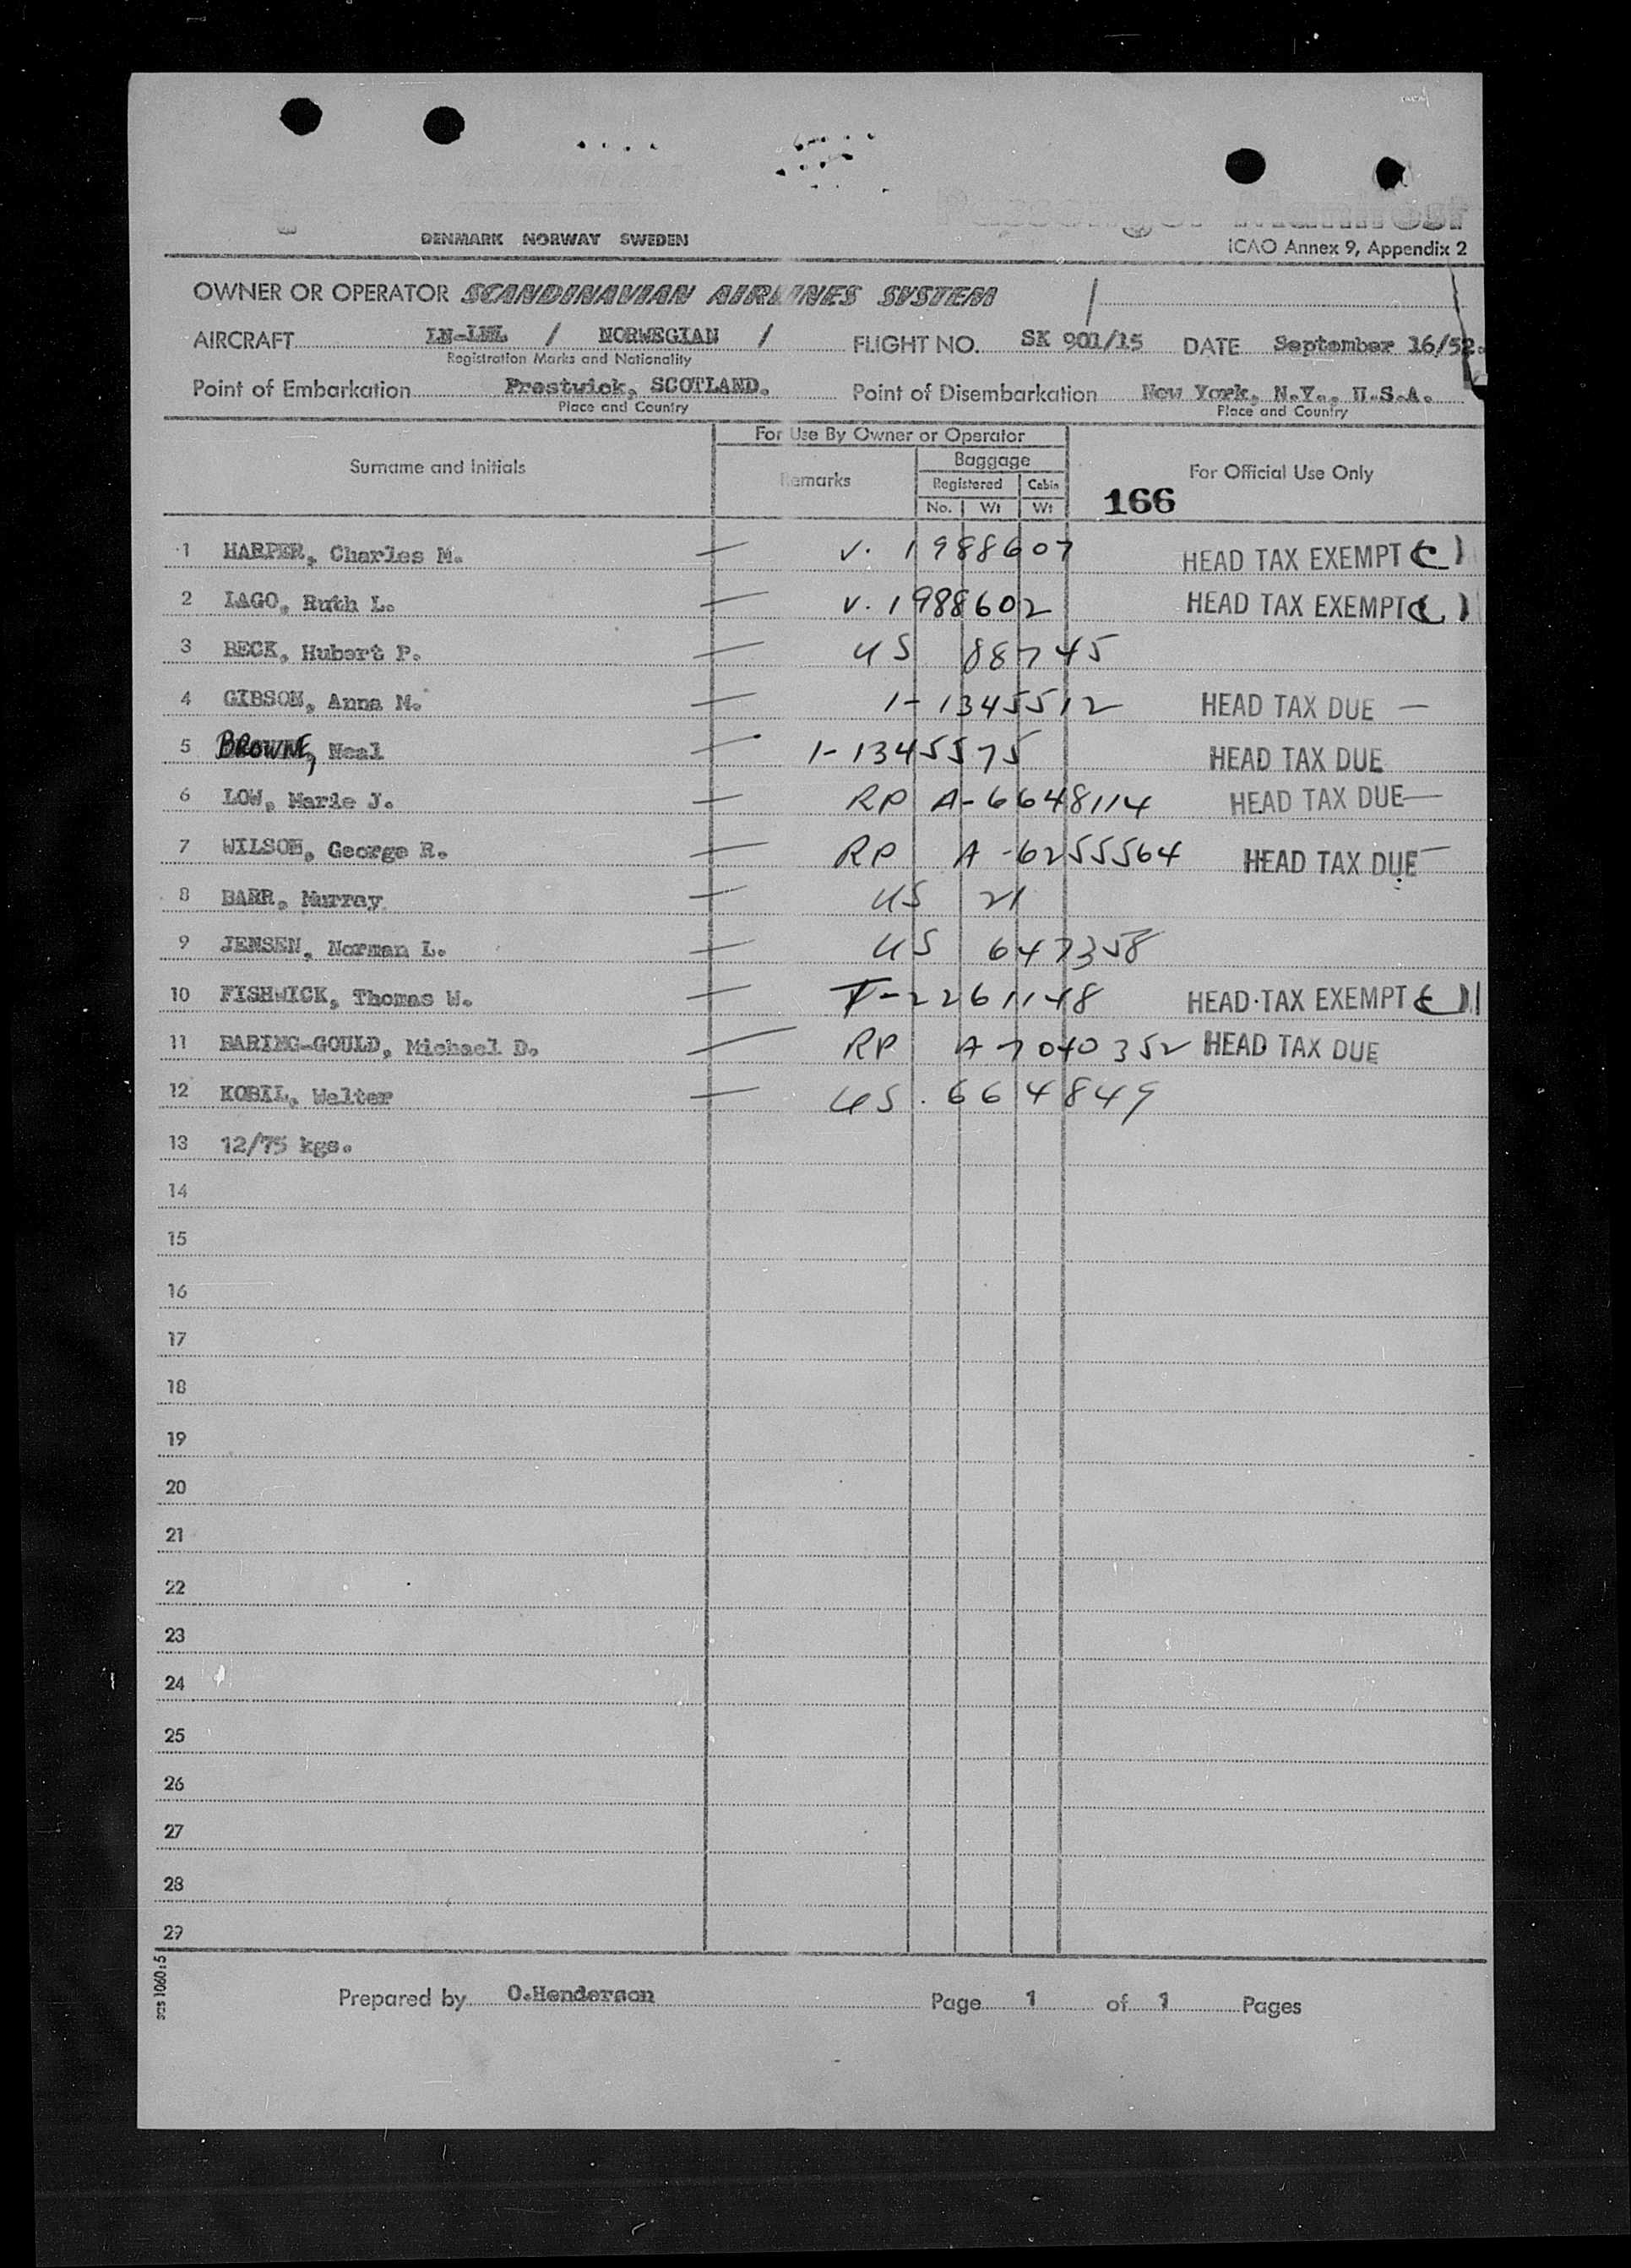 Passenger Manifest
DENMARK NORWAY SWEDEN
ICAO Annex 9, Appendix 2
OWNER OR OPERATOR SCANDINAVIAN AIRLINES SYSTEM
AIRCRAFT / NORWEGIAN / FLIGHT NO. SK 901/15 DATE September 16/52.
Registration Marks and Nationality
Point of Embarkation Prestwick, SCOTLAND. Point of Disembarkation New York, N.Y., U.S.A.
Place and Country Place and Country
For Use By Owner or Operator
Surname and Initials Remarks Baggage For Official Use Only
Registered Cabin
No. Wt Wt 166
1 HARPER, Charles M. — V. 1988607 HEAD TAX EXEMPT (C)
2 IAGO, Ruth L. — V. 1988602 HEAD TAX EXEMPT (C)
3 BECK, Hubert P. — US 88745
4 GIBSON, Anna M. — 1-1345512 HEAD TAX DUE —
5 BROWNE, Neal — 1-1345575 HEAD TAX DUE
6 LOW, Marie J. — RP A-6648114 HEAD TAX DUE —
7 WILSON, George R. — RP A-6255564 HEAD TAX DUE —
8 BARR, Murray — US 21
9 JENSEN, Norman L. — US 647358
10 FISHWICK, Thomas W. — V-2261148 HEAD TAX EXEMPT (C)
11 BARING-GOULD, Michael D. — RP A-7040352 HEAD TAX DUE
12 KOBIL, Walter — US. 664849
13 12/75 kgs.
14
15
16
17
18
19
20
21
22
23
24
25
26
27
28
29
sas 1060:5
Prepared by O.Henderson Page 1 of 1 Pages